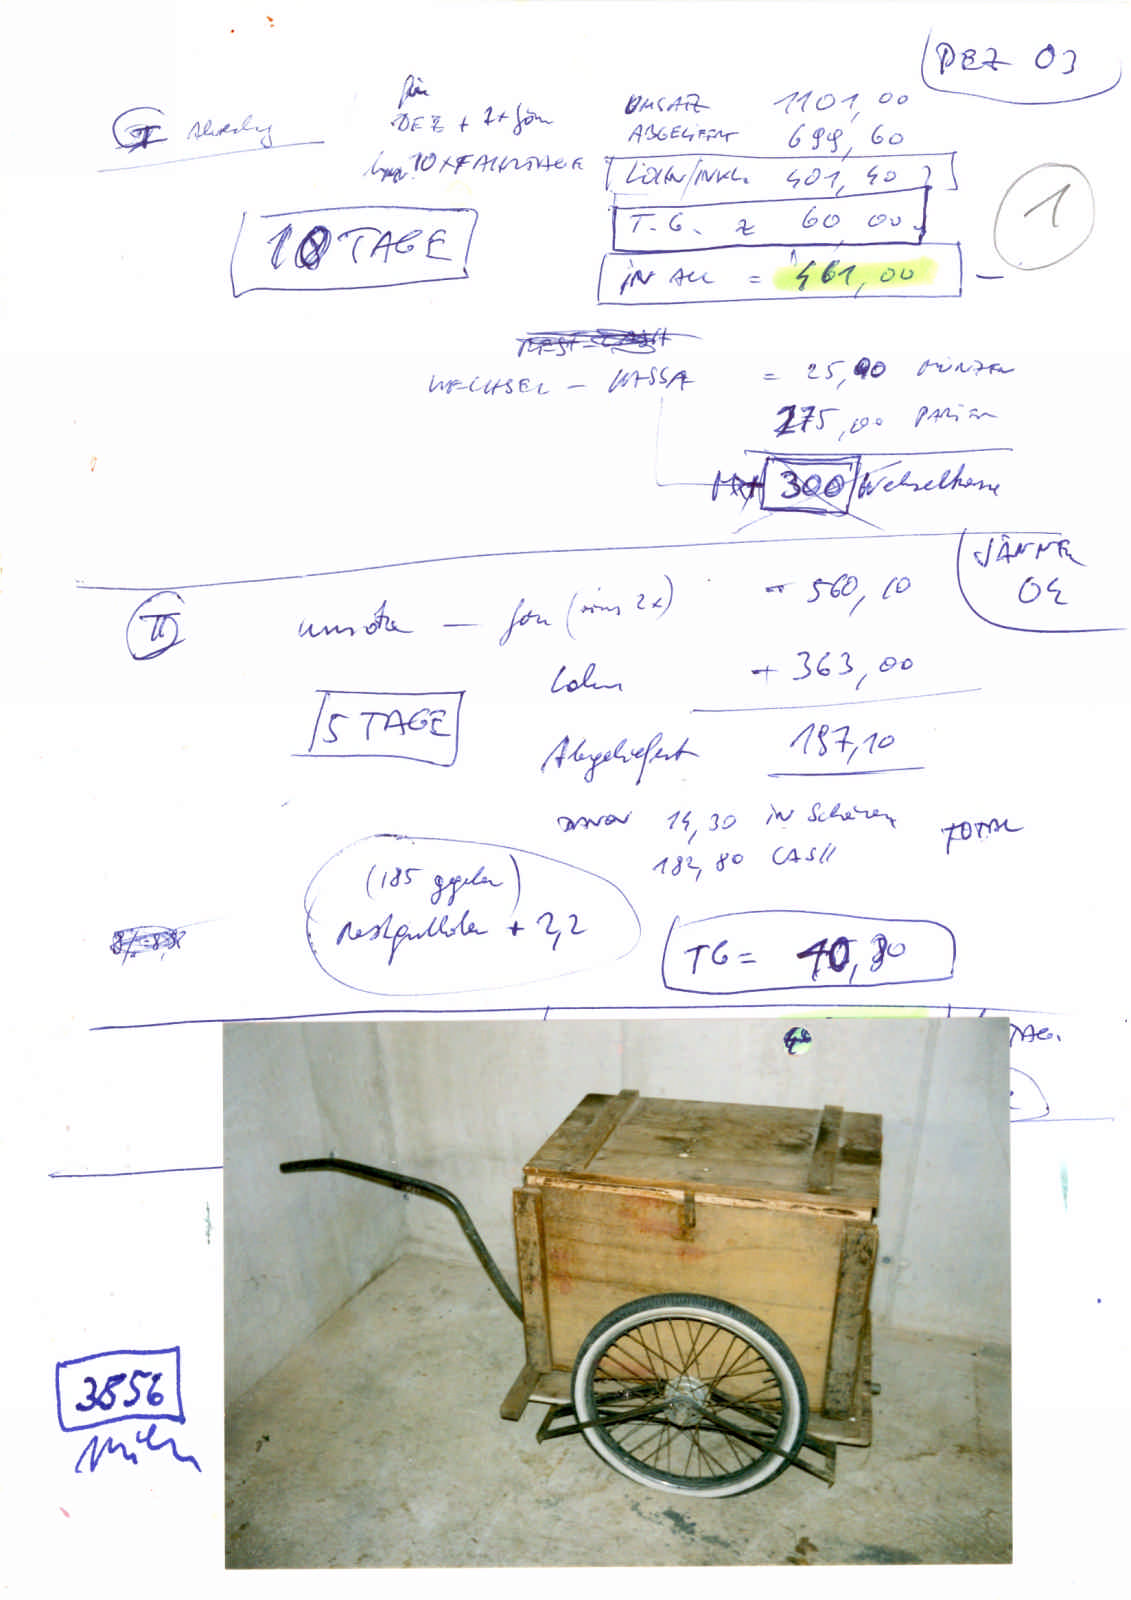 DEZ 03
I
für
DEZ + 2x Jän UMSATZ 1101,00
ABGELIEFERT 699,60
10 x FAHRTAGE LOHN/INKL. 401,40
10 TAGE T.G. z 60 00
1
IN ALL = 461,00 —
REST-CASH
WECHSEL – KASSA = 25,00 MÜNZEN
275,00 PAPIER
300 Wechselkasse
JÄNNER
04
II Umsätze — Jän (minus 2x) + 560,10
Lohn + 363,00
5 TAGE
Abgeliefert 197,10
DAVON 14,30 IN Schänen TOTAL
182,80 CASH
(185 gegeben)
Restguthaben + 2,2
TG = 40,30
TAG.
3856